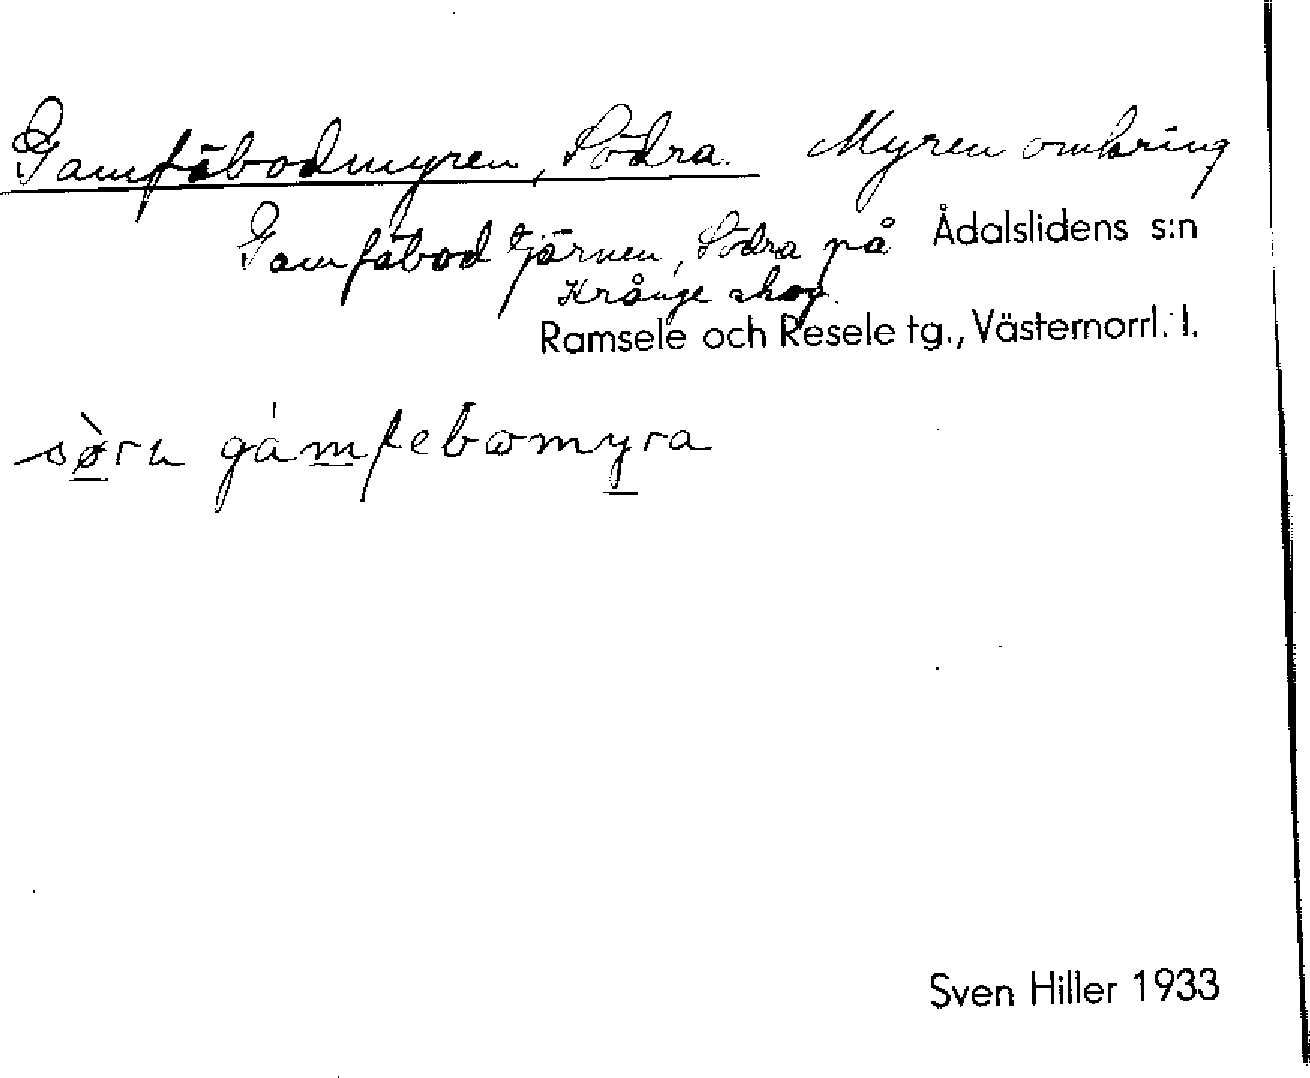 Gamfäbodmyren, Södra. Myren omkring
Gamfäbodtjärnen, Södra på Ådalslidens s:n
Krånge skog.
Ramsele och Resele tg., Västernorrl. l.
sø̀rn gámfebomyra
Sven Hiller 1933